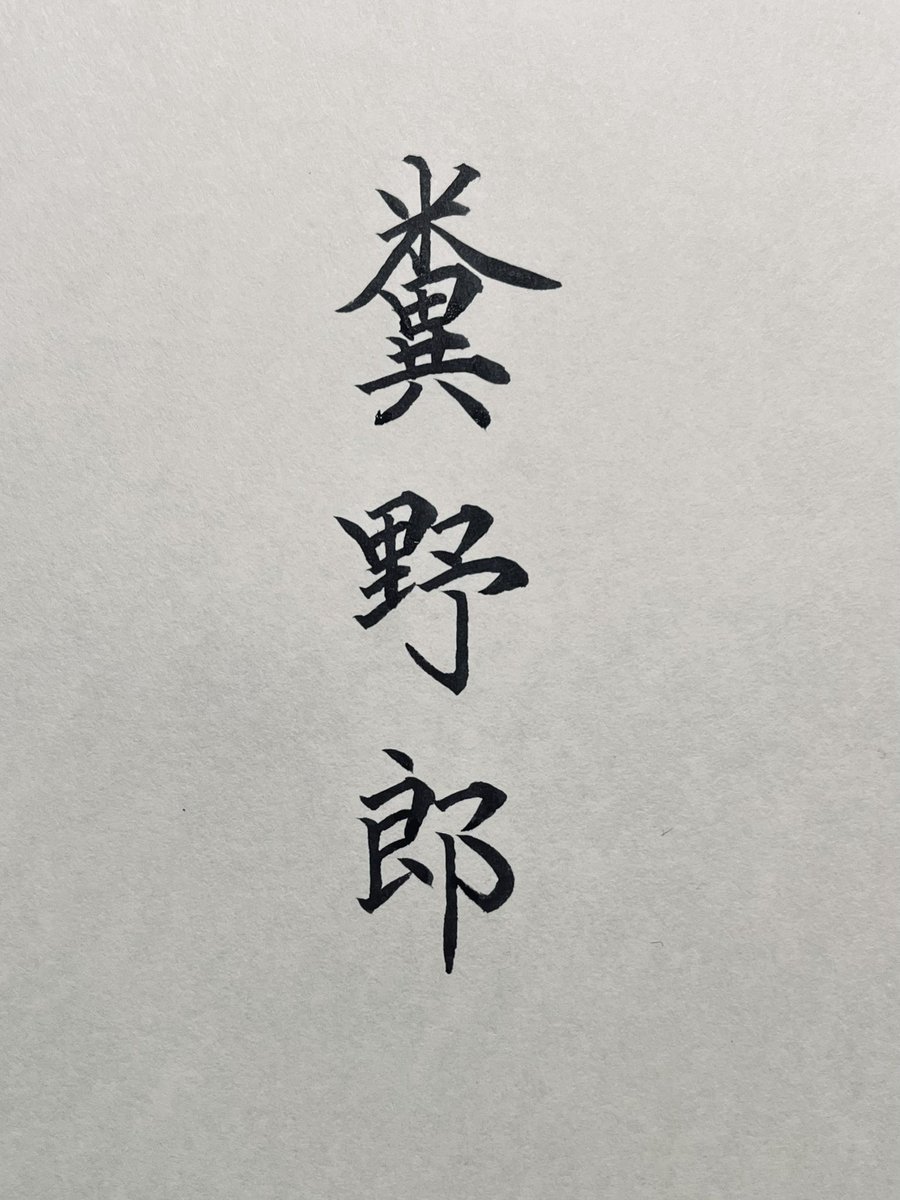 糞野郎